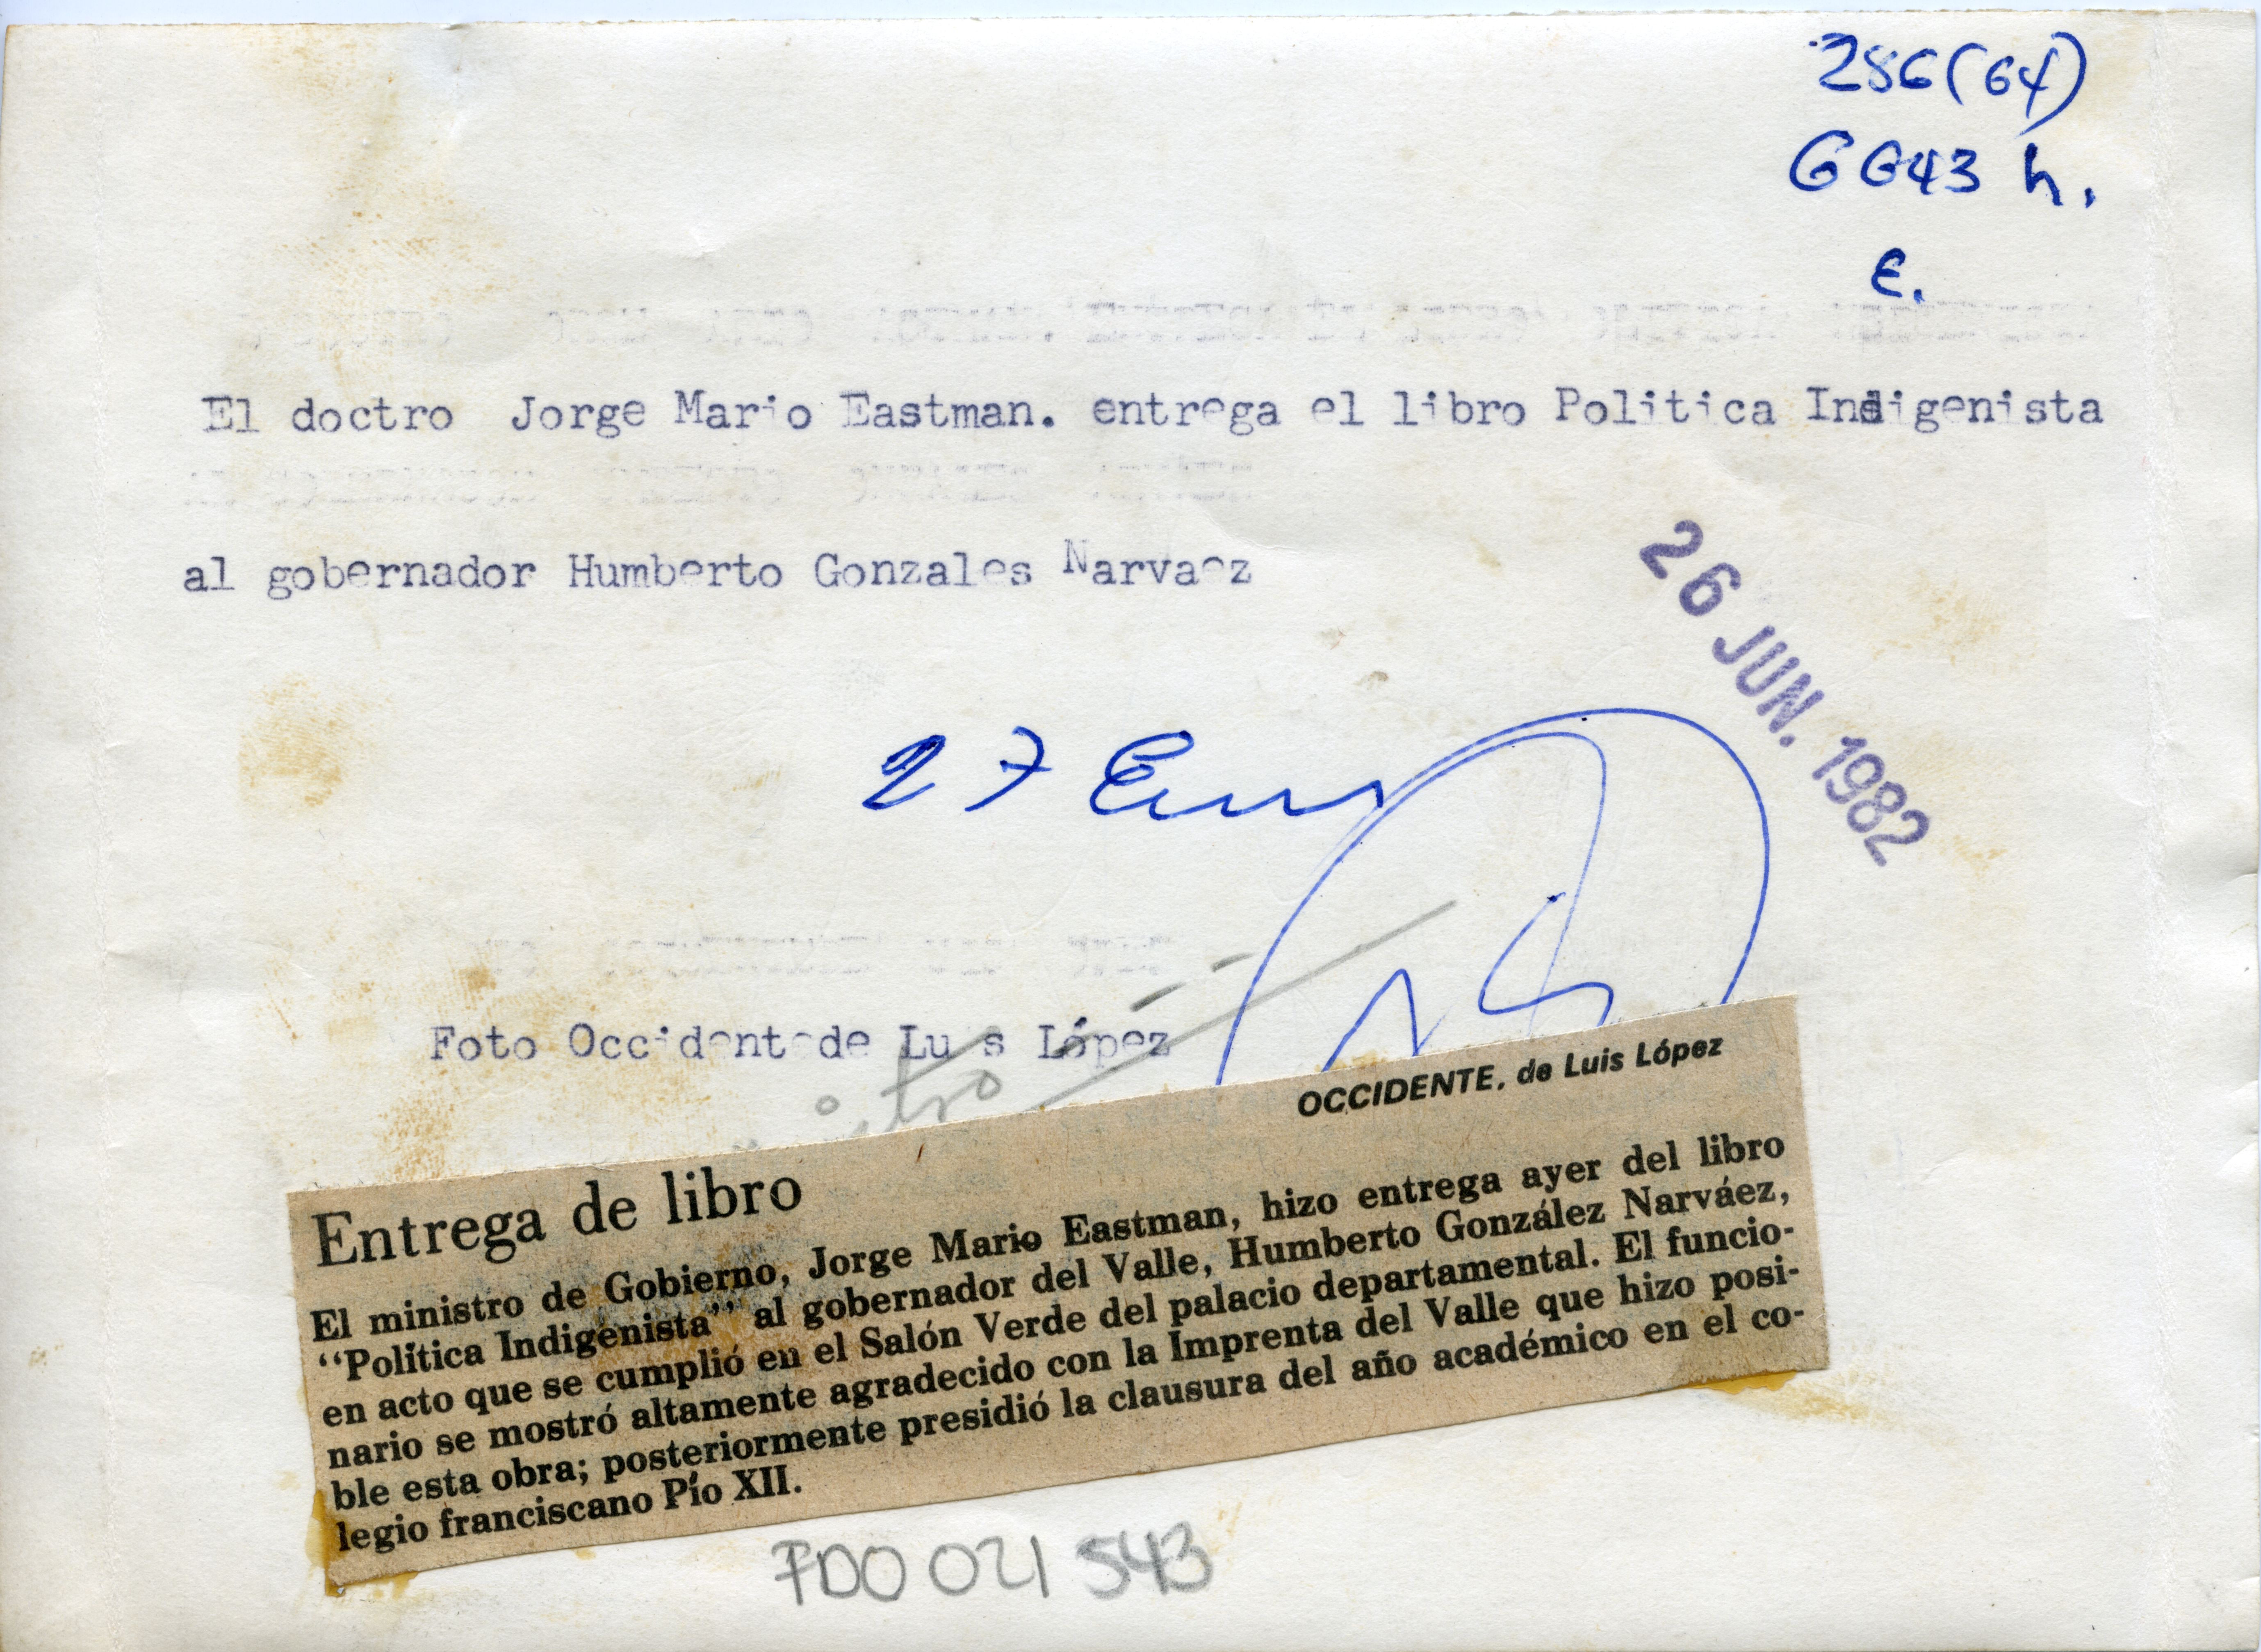 286(64)
GG43 h.
E.
El doctro Jorge Mario Eastman. entrega el libro Politica Indigenista
al gobernador Humberto Gonzales Narvaez
26 JUN. 1982
27
Foto Occidente de Luis López
OCCIDENTE, de Luis López
Entrega de libro
El ministro de Gobierno, Jorge Mario Eastman, hizo entrega ayer del libro
“Política Indigenista” al gobernador del Valle, Humberto González Narváez,
en acto que se cumplió en el Salón Verde del palacio departamental. El funcio-
nario se mostró altamente agradecido con la Imprenta del Valle que hizo posi-
ble esta obra; posteriormente presidió la clausura del año académico en el co-
legio franciscano Pío XII.
FDO 021 543